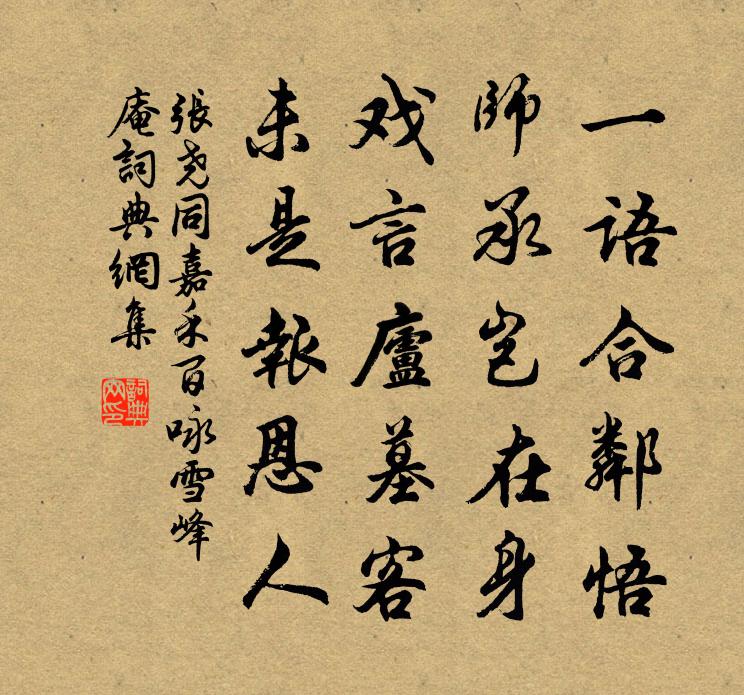 一語合鄰悟
師承豈在身
戏言廬墓客
未是報恩人
張尧同嘉禾百咏雪峰
庵詞典網集
詞典
网印